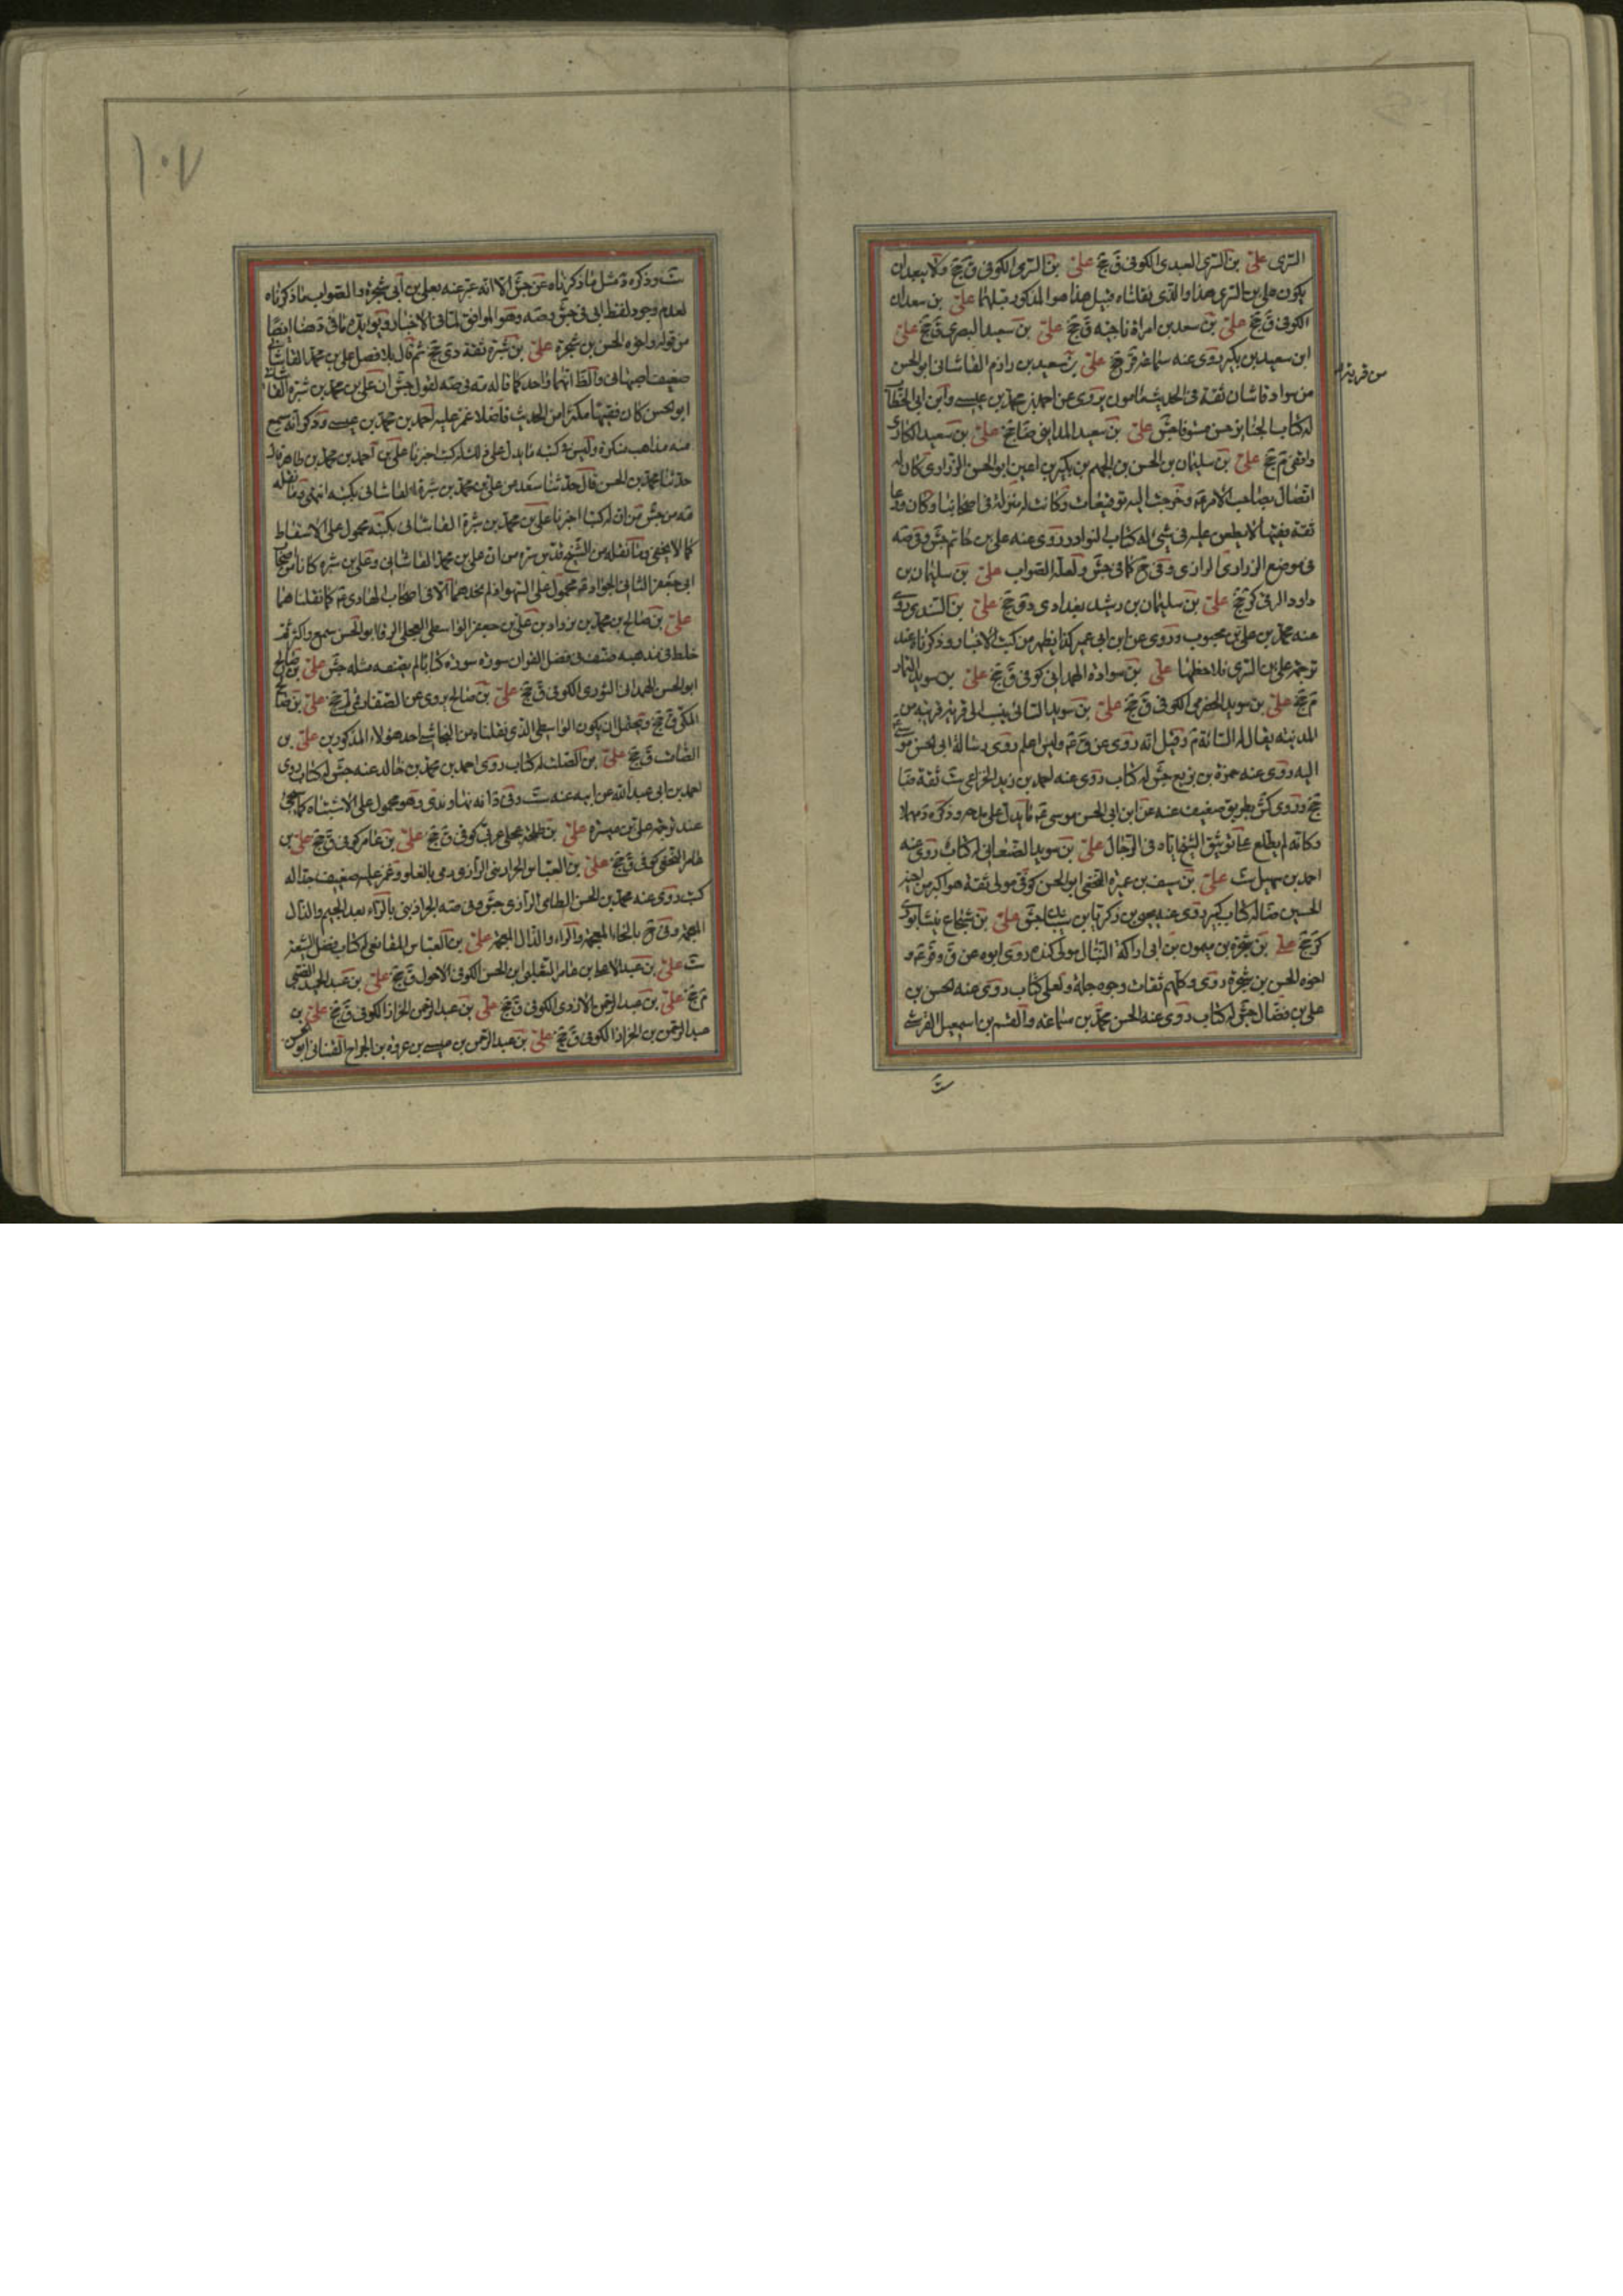 السرى على بن السرى العبدى الكوفى ق جخ على بن السرى الكوفى ق جخ ولا يبعد ان
يكون على بن السرى هذا والذى نقلناه قبيل هذا هو المذكور قبلهما على بن سعدان
الكوفى ق جخ على بن سعد بن امراة ناجية ق جخ على بن سعيد البصرى ق جخ على
ابن سعيد بن بكير روى عنه سماعة قر جخ على بن سعيد بن رزام القاشانى ابو الحسن
من سواد قاشان ثقة فى الحديث مامون يروى عن احمد بن محمد بن عيسى وابن ابى الخطاب
له كتاب الجنايز حسن مستوفا جش على بن سعيد المداينى ضا جخ على بن سعيد المكارى
واقفى م جخ على بن سليمان بن الحسن بن الجهم بن بكير بن اعين ابو الحسن الزرارى كان له
اتصال بصاحب الامر عه وخرجت اليه توقيعات وكانت له منزلة فى اصحابنا وكان ورعا
ثقة فقيها لا يطعن عليه فى شئ له كتاب النوادر روى عنه على بن حاتم جش وفى صه
فى موضع الزرارى الرازى وفى ح كما فى جش ولعله الصواب على بن سليمان بن
داود الرقى كر جخ على بن سليمان بن رشيد بغدادى دى جخ على بن السندى روى
عنه محمد بن على بن محبوب وروى عن ابن ابى عمير كذا يظهر من كتب الاخبار وذكرناه عند
ترجمة على بن السرى فلاحظها على بن سوادة الهمدانى كوفى ق جخ على بن سويد التمار
م جخ على بن سويد الحضرمى الكوفى ق جخ على بن سويد السائى ينسب الى قرية قريبة من
المدينة يقال له السائة م وقيل انه روى عن ق عه وليس اعلم روى رسالة ابى الحسن موسى عه
اليه روى عنه حمزة بن بزيع جش له كتاب روى عنه احمد بن زيد الخزاعى ست ثقة ضا
جخ وروى كش بطريق ضعيف عنه عن ابن ابى الحسن موسى عه ما يدل على مدحه وذكره د مهملا
وكانه لم يطلع على توثيق الشيخ اياه فى الرجال على بن سويد الصنعانى له كتاب روى عنه
احمد بن سهيل ست على بن سيف بن عميرة النخعى ابو الحسن كوفى مولى ثقة هو اكبر من اخيه
الحسين ضا له كتاب كبير روى عنه يحيى بن زكريا بن شيبان جش على بن شجاع نيشابورى
كر جخ على بن شجرة بن ميمون بن ابى اراكة النبال مولى كندة روى ابوه عن ق وقر عه و
اخوه الحسن بن شجرة روى وكلهم ثقات وجوه جلة ولعلى كتاب روى عنه الحسن بن
على بن فضال جش له كتاب روى عنه الحسن بن محمد بن سماعة والقسم بن اسمعيل القرشى
ست
من قرية
١٠٧
ست وذكره د مثل ما ذكرناه عن جش الا انه عبر عنه بعلى بن ابى شجرة والصواب ما ذكرناه
لعدم وجود لفظ ابى فى جش وصه وهو الموافق لما فى الاخبار ويؤيده ما فى د هنا ايضا
من قوله واخوه الحسن بن شجرة على بن شيرة ثقة دى جخ ثم قال بلا فصل على بن محمد القاشانى
ضعيف اصبهانى والظ انهما واحد كما قاله مه فى صه لقول جش ان على بن محمد بن شيرة القاشانى
ابو الحسن كان فقيها مكثرا من الحديث فاضلا غمز عليه احمد بن محمد بن عيسى وذكر انه سمع
منه مذاهب منكرة وليس فى كتبه ما يدل على ذلك له كتب اخبرنا على بن احمد بن محمد بن طاهر قال
حدثنا محمد بن الحسن قال حدثنا سعد عن على بن محمد بن شيرة القاشانى بكتبه انتهى وما نقله
مه من جش من ان له كتبا اخبرنا على بن محمد بن شيرة القاشانى بكتبه محمول على الاسقاط
كما لا يخفى وما نقله من الشيخ قدس سره من ان على بن محمد القاشانى وعلى بن شيرة كانا من اصحاب
ابى جعفر الثانى الجواد عه محمول على السهو اذ لم نجدهما الا فى اصحاب الهادى عه كما نقلناهما
على بن صالح بن محمد بن يزداد بن على بن جعفر الواسطى العجلى الرفا ابو الحسن سمع واكثر ثم
خلط فى مذهبه صنف فى فضل القران سورة سورة كتابا لم يصنف مثله جش على بن صالح
ابو الحسن الهمدانى الثورى الكوفى ق جخ على بن صالح يروى عن الصفار لم جخ على بن صالح
المكى ق جخ ويحتمل ان يكون الواسطى الذى نقلناه من النجاشى احد هولاء المذكورين على بن
الصامت ق جخ على بن الصلت له كتاب روى احمد بن محمد بن خالد عنه جش له كتاب روى
احمد بن ابى عبد الله عن ابيه عنه ست وفى د انه نهاوندى وهو محمول على الاشتباه كما سيجئ
عند ترجمة على بن ميسرة على بن طلحة عجلى عربى كوفى ق جخ على بن عامر كوفى ق جخ على بن
عامر النخعى كوفى ق جخ على بن العباس الجراذينى الرازى رمى بالغلو وغمز عليه ضعيف جدا له
كتب روى عنه محمد بن الحسن الطائى الرازى جش وفى صه الجراذينى بالراء بعد الجيم والذال
المعجمة وفى ح بالخاء المعجمة والراء والذال المعجمة على بن العباس المقانعى له كتاب فضل الشيعة
ست على بن عبد الاعلى بن عامر الثعلبى ابن الحسن الكوفى الاحول ق جخ على بن عبد الحميد الضبى
م جخ على بن عبد الرحمن الازدى الكوفى ق جخ على بن عبد الرحمن الخزاز الكوفى ق جخ على بن
عبد الرحمن بن الخزاز الكوفى ق جخ على بن عبد الرحمن بن عيسى بن عروة بن الجراح القنانى ابو الحسن